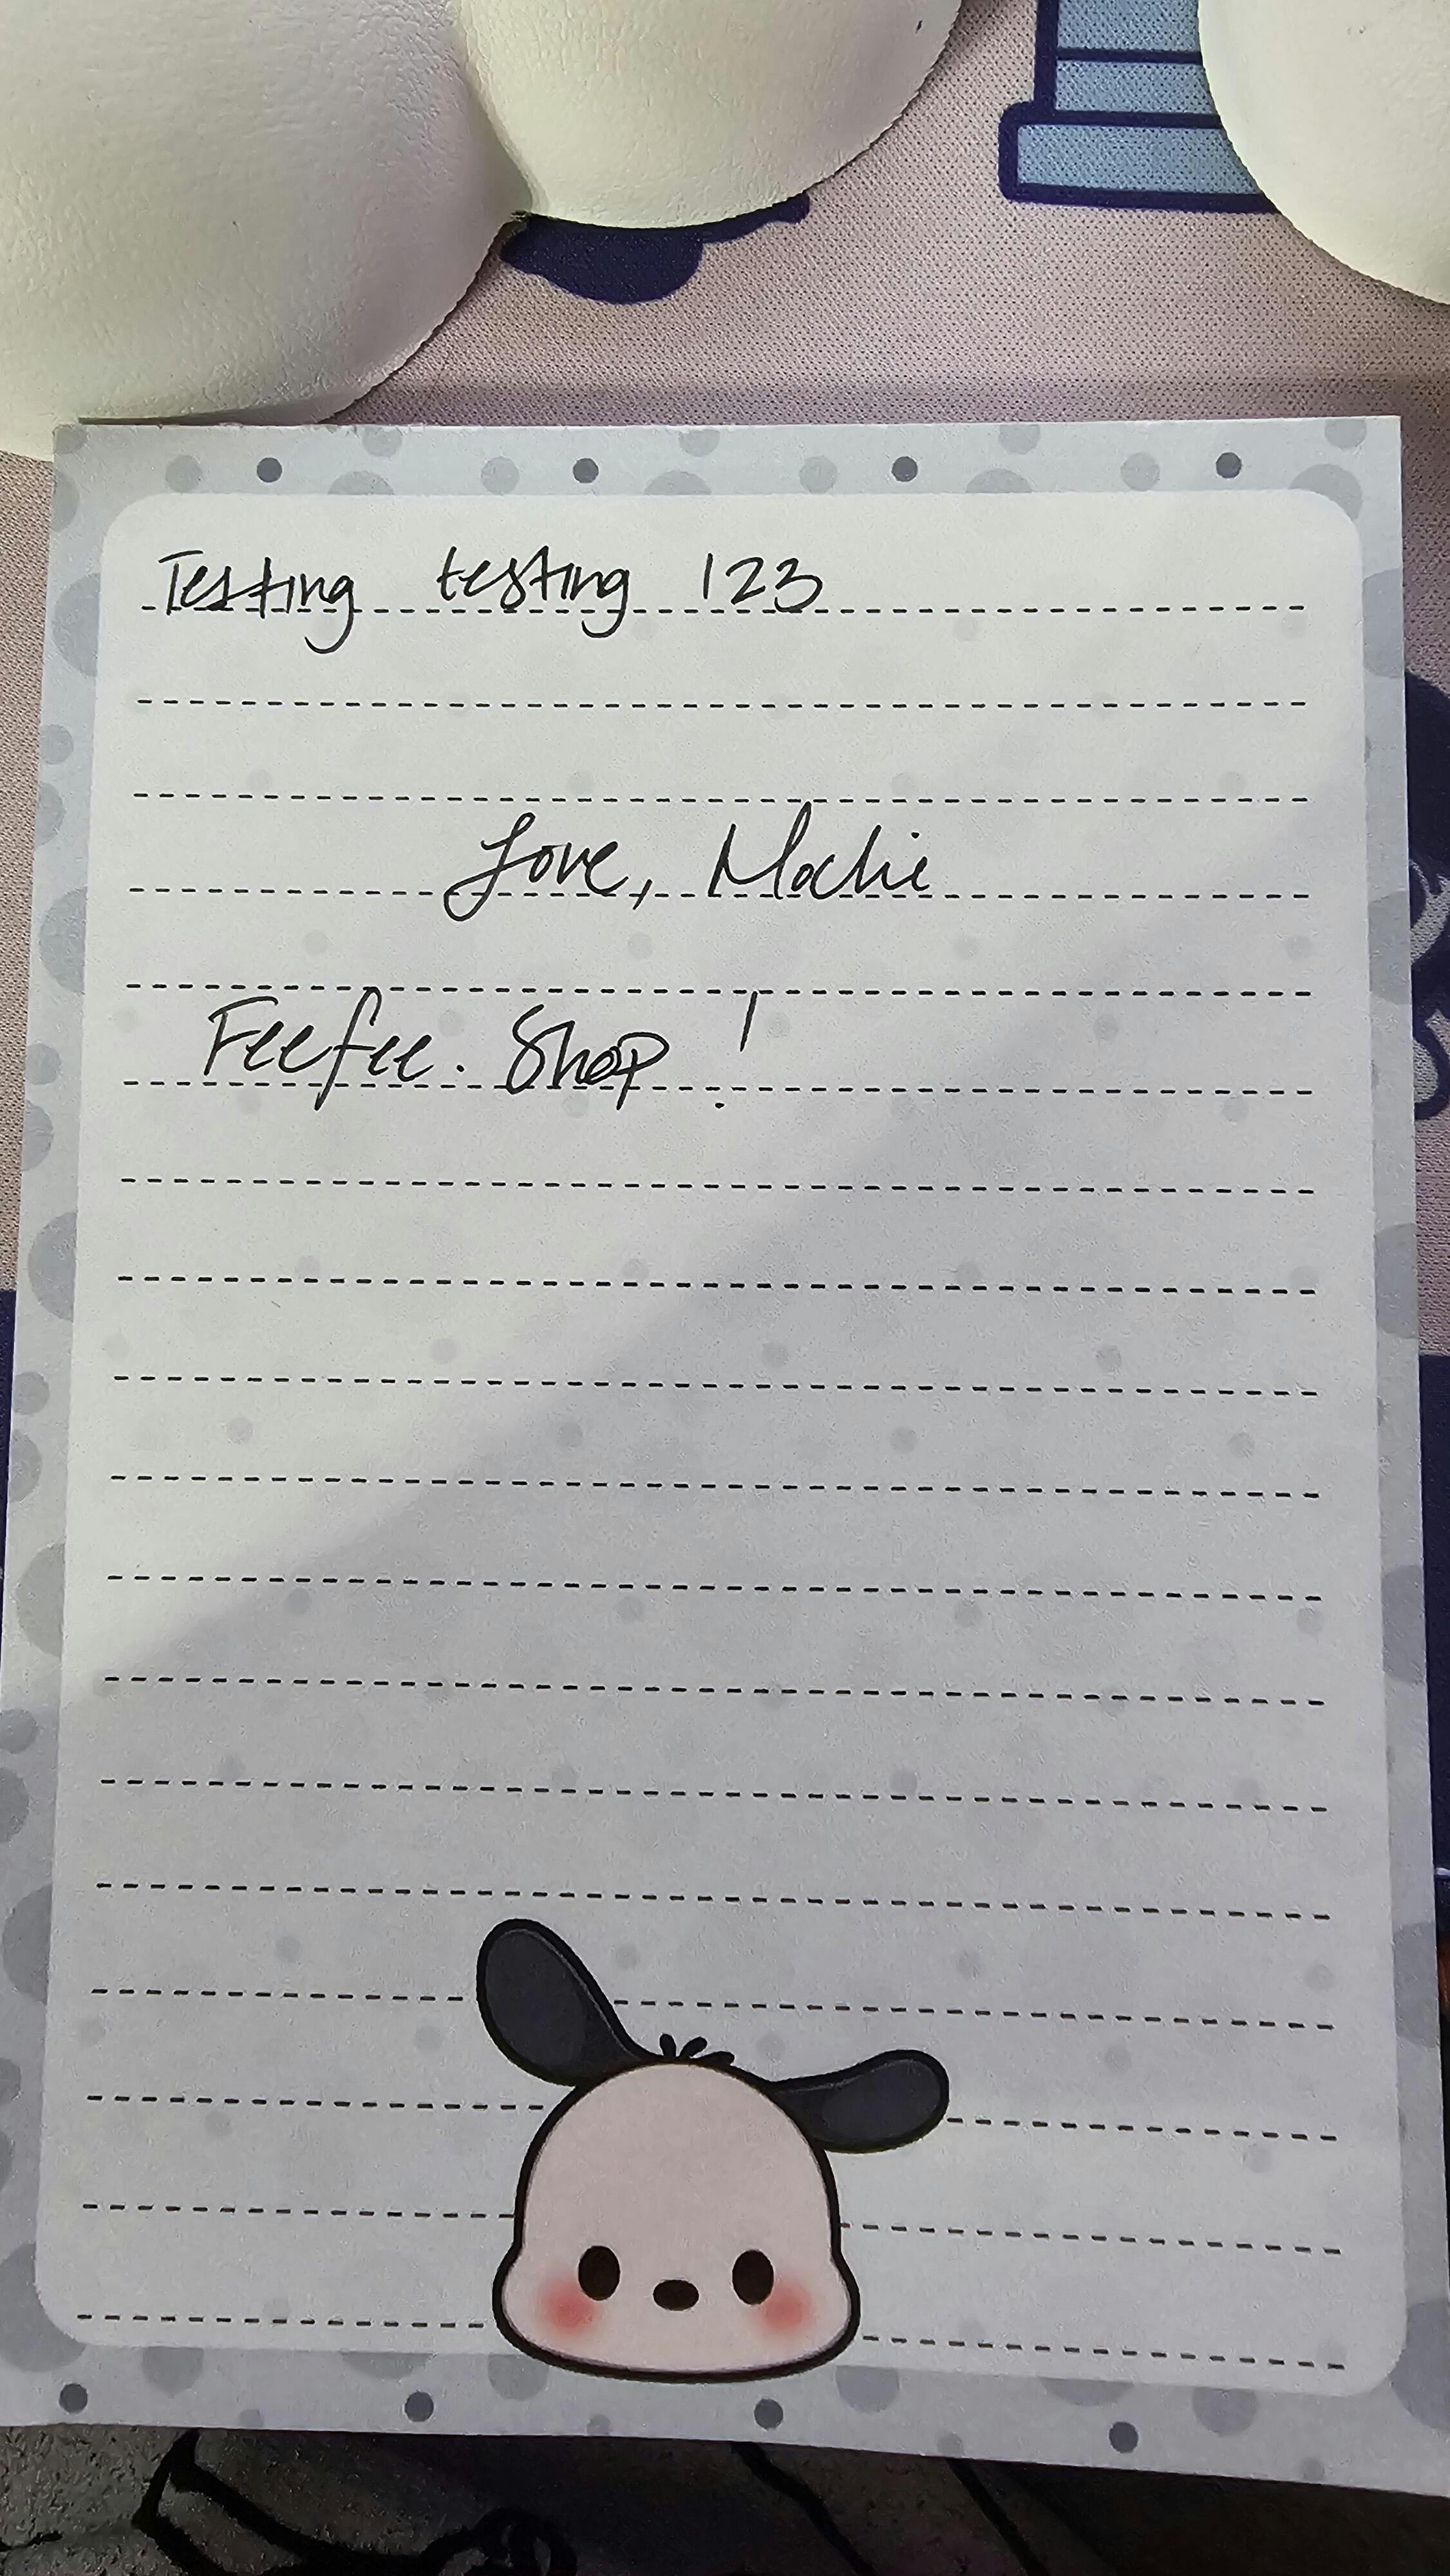 Testing testing 123
Love, Mochie
Feefee. Shop !